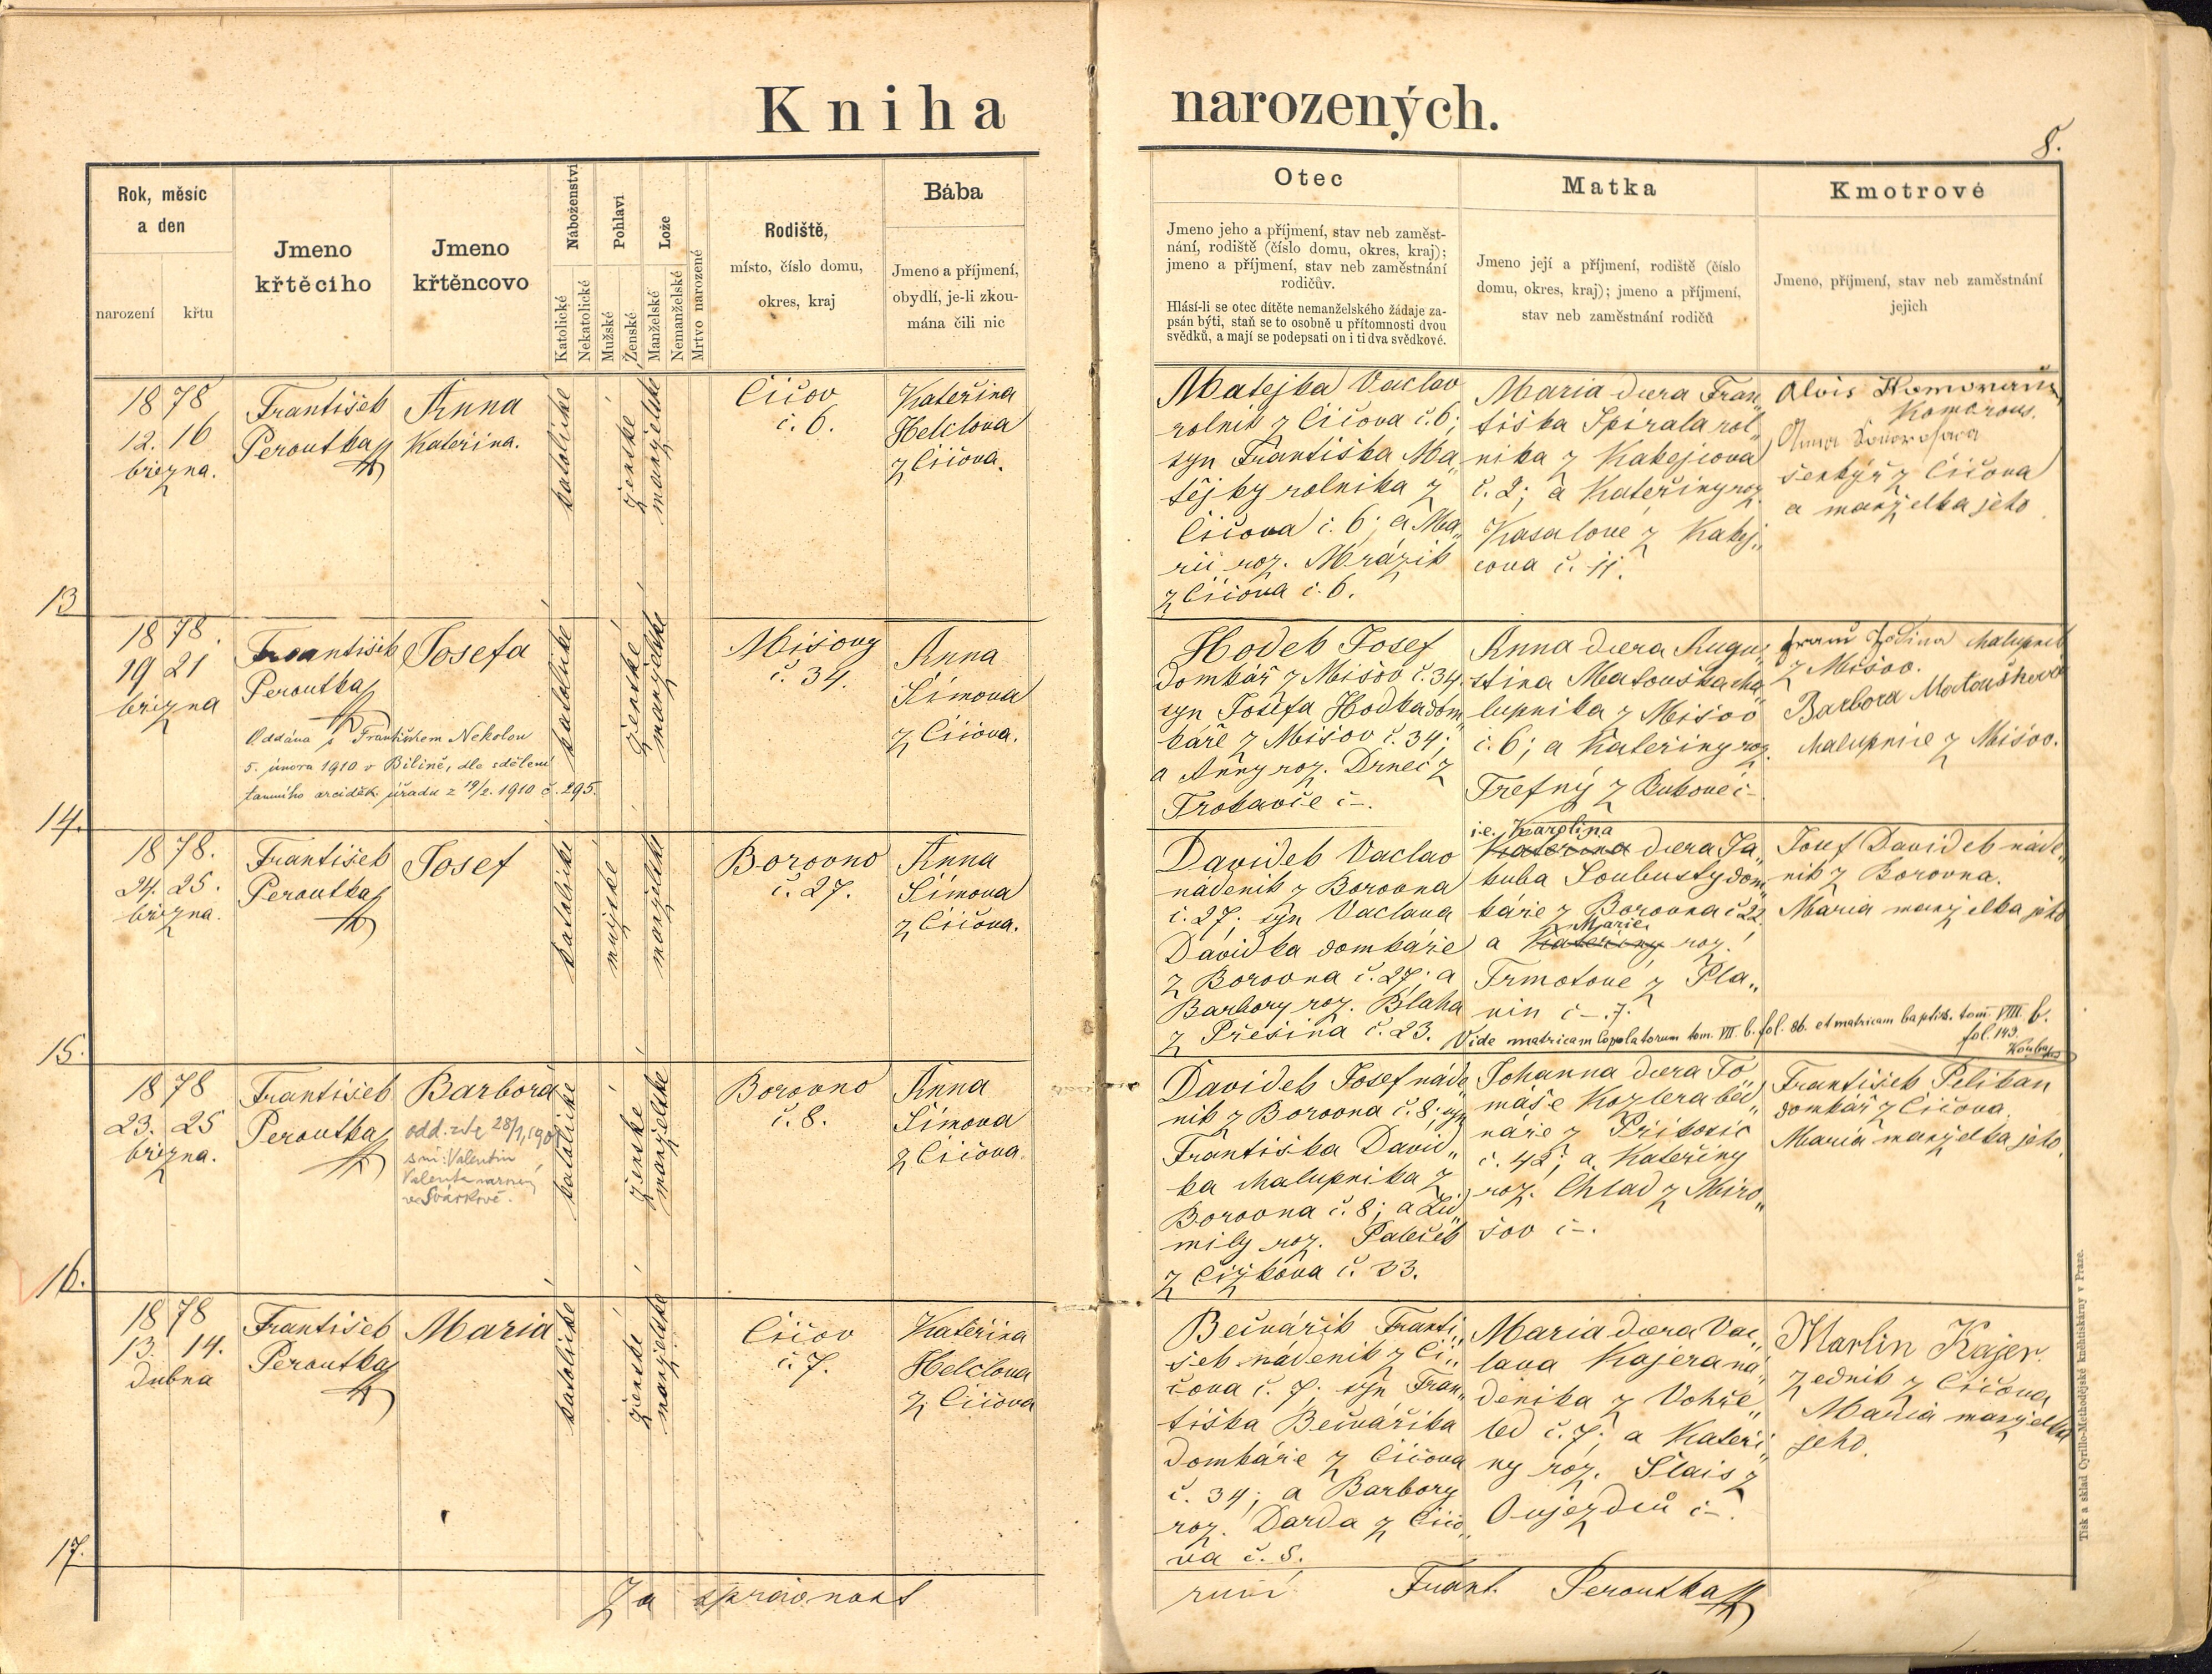 Kniha narozených.
8.
Rok, měsíc
a den
narození
křtu
Jmeno
křtěcího
Jmeno
křtěncovo
Náboženství
Katolické
Nekatolické
Pohlaví
Mužské
Ženské
Lože
Manželské
Nemanželské
Mrtvo narozené
Rodiště,
místo, číslo domu,
okres, kraj
Bába
Jmeno a příjmení,
obydlí, je-li zkou-
mána čili nic
Otec
Jmeno jeho a příjmení, stav neb zaměst-
nání, rodiště (číslo domu, okres, kraj);
jmeno a příjmení, stav neb zaměstnání
rodičův.
Hlásí-li se otec dítěte nemanželského žádaje za-
psán býti, staň se to osobně u přítomnosti dvou
svědků, a mají se podepsati on i ti dva svědkové.
Matka
Jmeno její a příjmení, rodiště (číslo
domu, okres, kraj); jmeno a příjmení,
stav neb zaměstnání rodičů
Kmotrové
Jmeno, příjmení, stav neb zaměstnání
jejich
13
1878
12. 16
března.
František
Peroutka
Anna
Kateřina.
katolické
ženské
manželské
Čičov
č. 6.
Kateřina
Helclova
z Čičova.
Matejka Vaclav
rolnik z Čičova č. 6;
syn Františka Ma„
tějky rolnika z
Čičova č. 6; a Ma„
rii roz. Mrázik
z Čičova č. 6.
Maria dcera Fran„
tiška Špirala rol„
nika z Kakejcova
č. 2; a Kateřiny roz.
Kasalove z Kakej„
cova č. 11.
Alois
Komorous
Anna
šenkýř z Čičova
a manželka jeho
14.
1878.
19 21
března
František
Peroutka
Josefa
Oddána s Františkem Nekolou
5. února 1910 v Bílině, dle sdělení
tamního arciděk. úřadu z 19/2. 1910 č. 295.
katolické
ženské
manželské
Mišovy
č. 34.
Anna
Šimova
z Čičova.
Hodek Josef
domkář z Mišov č. 34.
syn Josefa Hodka dom„
káře z Mišov č. 34;
a Anny roz. Drnec z
Trokavče č –.
Anna dcera Augu„
stina Matouška cha„
lupnika z Mišov
č. 6; a Kateřiny roz.
Trefný z Bukové č –
chalupnik
z Mišov.
Barbora Matoušková
chalupnice z Mišov.
15.
1878.
24. 25.
března.
František
Peroutka
Josef
katolické
mužské
manželské
Borovno
č. 27.
Anna
Šimova
z Čičova.
Davidek Vaclav
nádenik z Borovna
č. 27; syn Vaclava
Davidka domkáře
z Borovna č. 27; a
Barbory roz. Blaha
z Přešina č. 23.
i.e. Karolina
Kateřina dcera Ja„
kuba Soukusty dom„
káře z Borovna č 22.
Marie
a Kateřiny roz.
Trmotové z Pla„
nin č –. 7.
Josef Davidek náde„
nik z Borovna.
Maria manželka jeho
Vide matricam Copulatorum tom. VII. b. fol. 86. et matricam baptis. tom. VIII. b.
fol. 149.
16.
1878
23. 25
března.
František
Peroutka
Barbora
odd. zde 28/1,190
s ni: Valentin
Valenta
ve Svárkově.
katolické
ženské
manželské
Borovno
č. 8.
Anna
Šimova
z Čičova.
Davidek Josef náde„
nik z Borovna č. 8; syn
Františka David„
ka chalupnika z
Borovna č. 8; a Lid„
mily roz. Paleček
z Čižkova č. 33.
Johanna dcera To„
máše Kozlera bed„
náře z Přikosic
č. 42; a Kateřiny
roz. Chlad z Miro„
šov č –.
František Pelikan
domkář z Čičova.
Maria manželka jeho.
17.
1878
13. 14.
Dubna
František
Peroutka
Maria
katolické
ženské
manželské
Čičov
č. 7.
Kateřina
Helclova
z Čičova
Bečvářik Franti„
šek nádenik z Či„
čova č. 7; syn Fran„
tiška Bečvářika
domkáře z Čičova
č. 34; a Barbory
roz. Darda z Čičo„
va č. 8.
Maria dcera Vac„
lava Kajera ná„
denika z Vohře„
led č. 7; a Kateři„
ny roz. Šlais z
Oujezdců č –.
Martin Kajer.
zednik z Čičova
Maria manželka
jeho.
Za správnost ručí Frant. Peroutka
Tisk a sklad Cyrillo-Methodějské knihtiskárny v Praze.